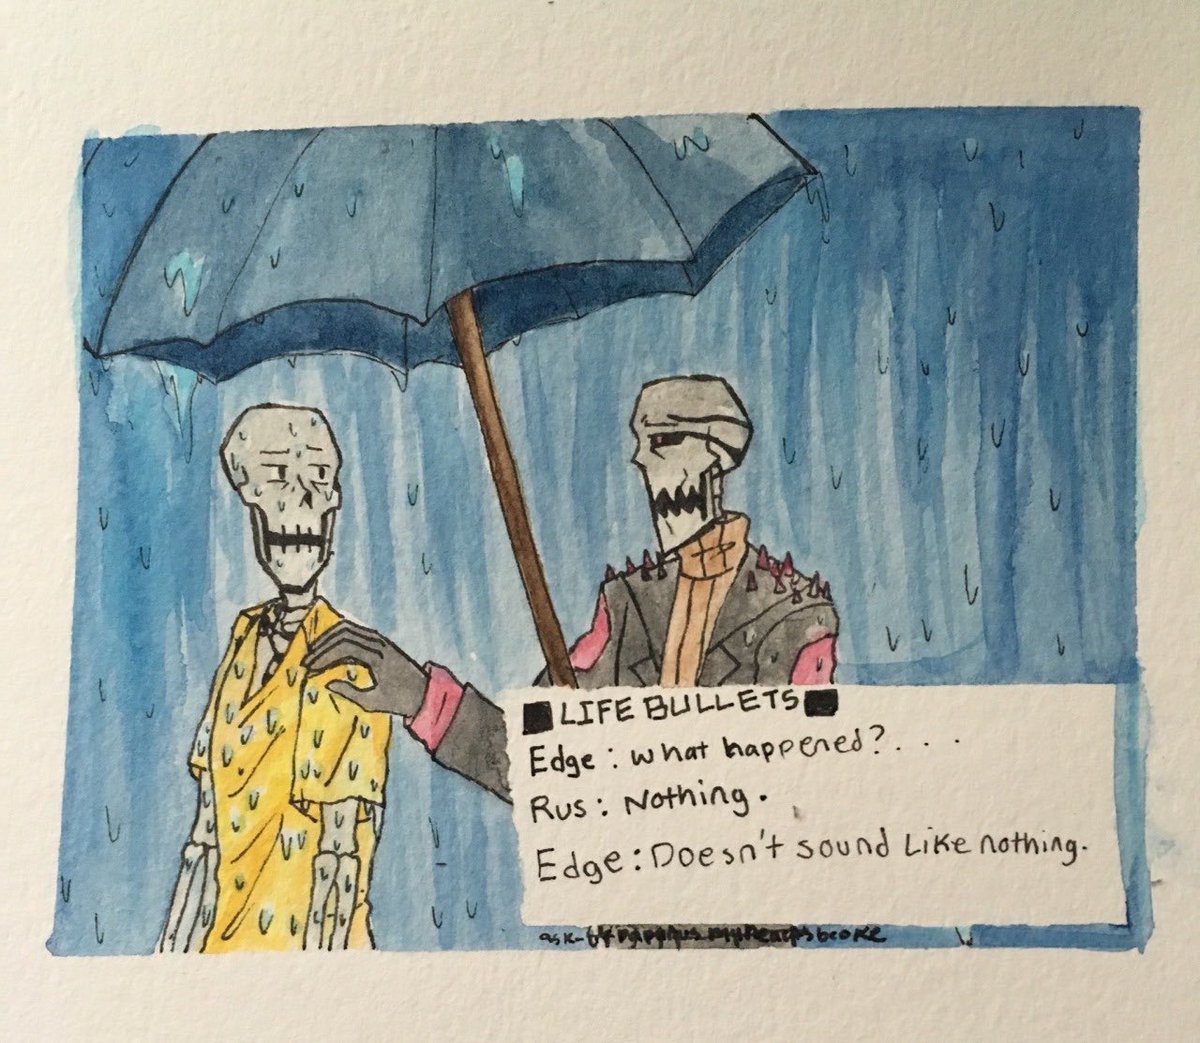 LIFE BULLETS
Edge: what happened?. . .
Rus: Nothing.
Edge: Doesn't sound like nothing.
ask-